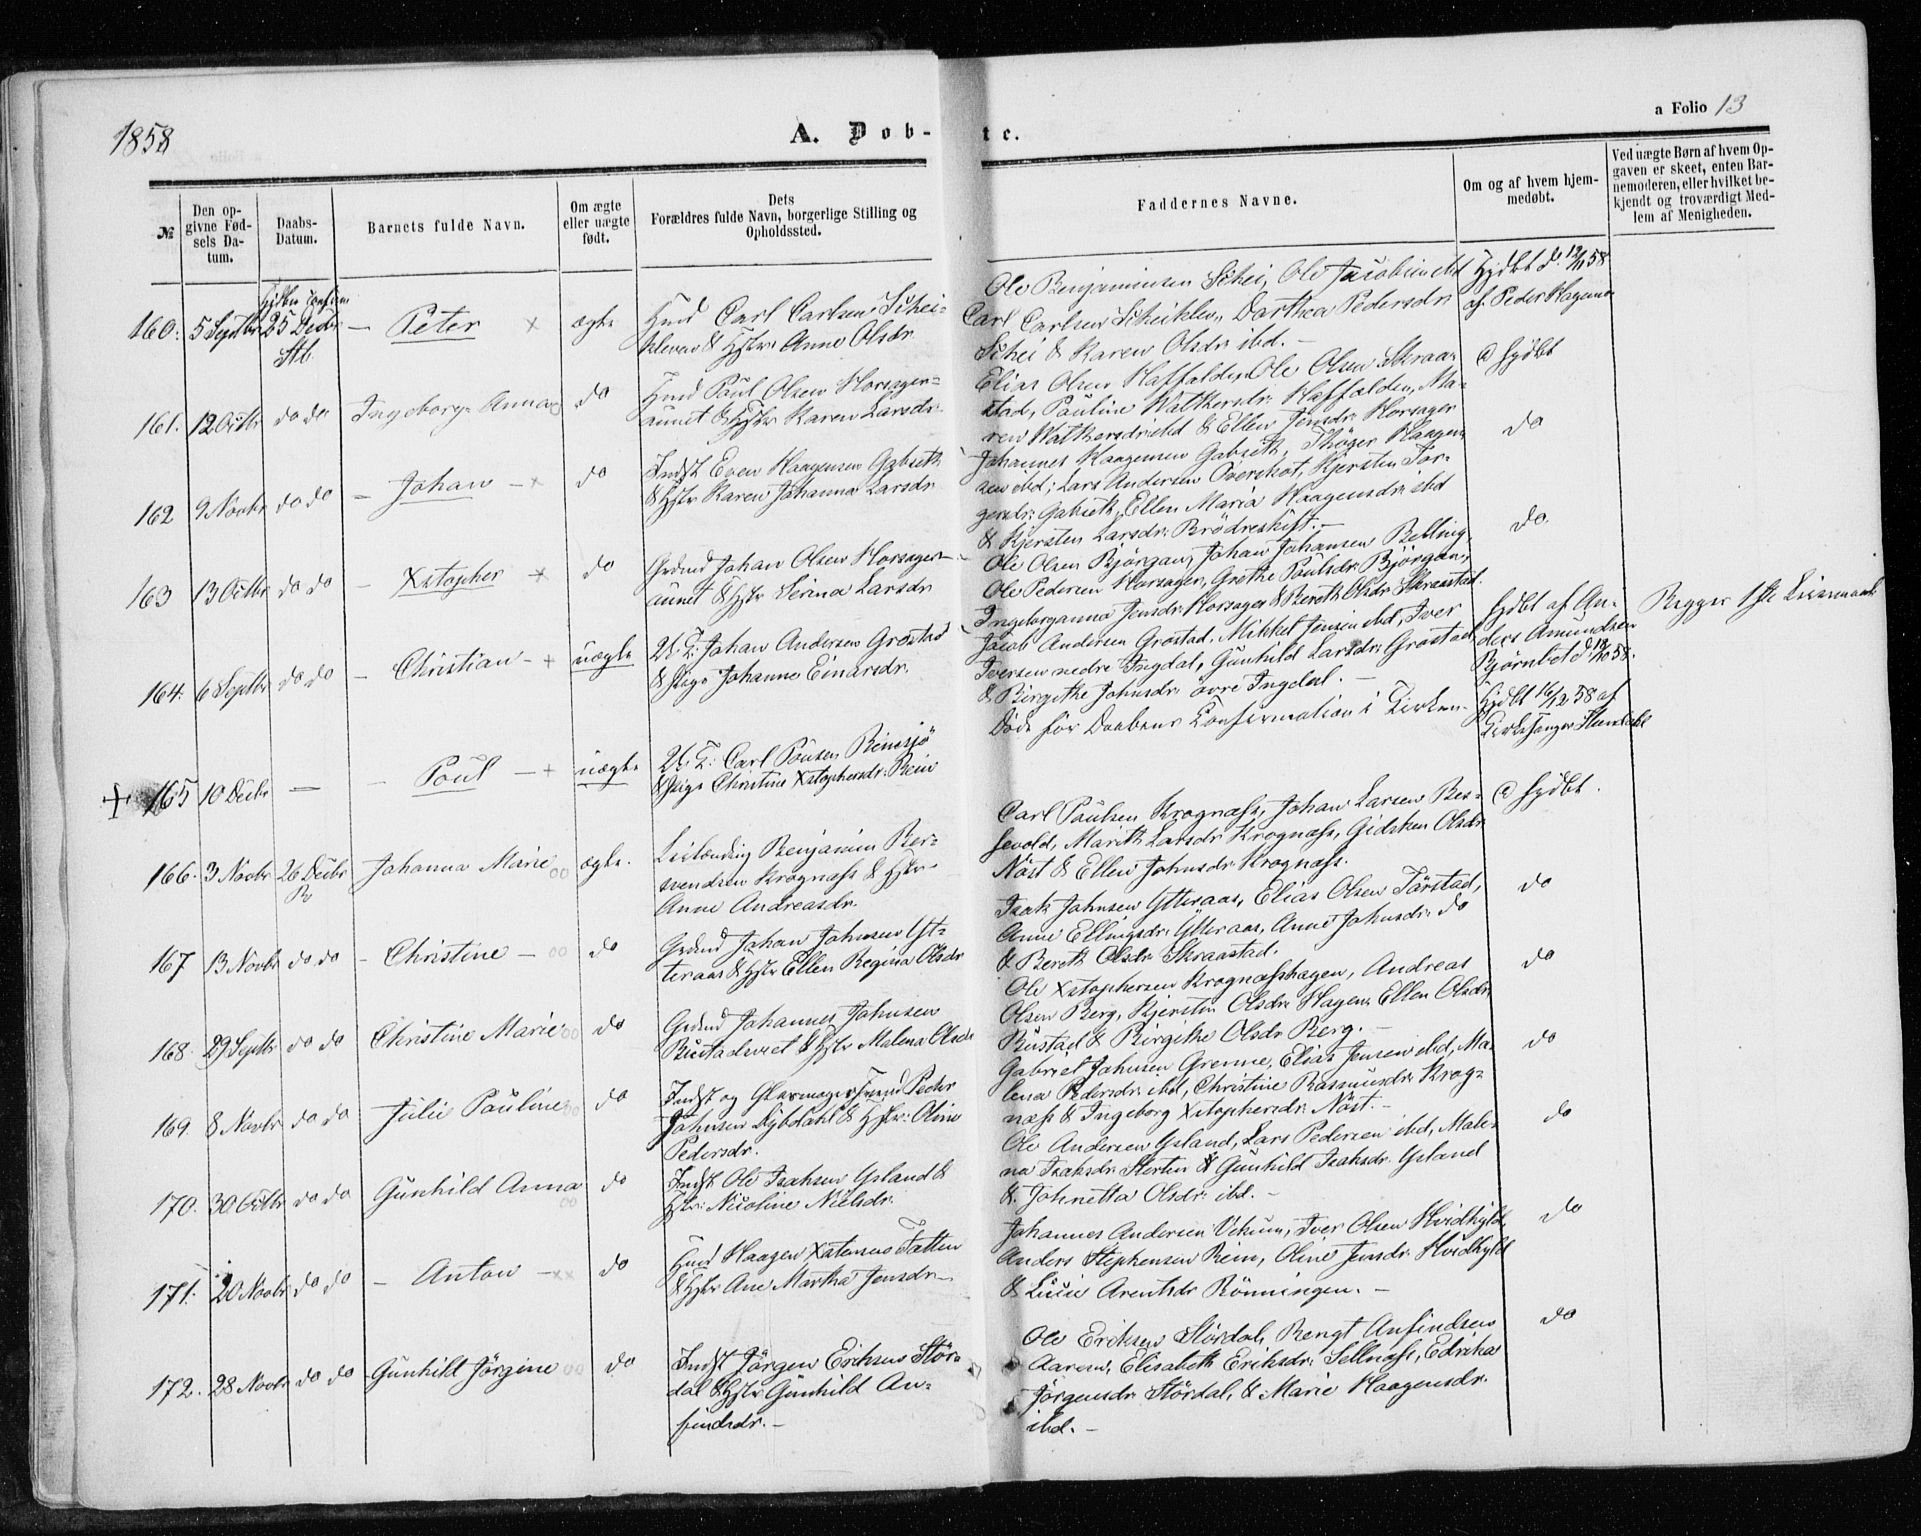 1858
A. Dob-
te.
a Folio 13
№
Den op-
givne Fød-
sels Da-
tum.
Daabs-
Datum.
Barnets fulde Navn.
Om ægte
eller uægte
født.
Dets
Forældres fulde Navn, borgerlige Stilling og
Opholdssted.
Faddernes Navne.
Om og af hvem hjem-
medøbt.
Ved uægte Børn af hvem Op-
gaven er skeet, enten Bar-
nemoderen, eller hvilket be-
kjendt og troværdigt Med-
lem af Menigheden.
160. 5 Septbr 25 Decbr
Stb.
– Peter × ægte
Hmd Carl Carlsen Schei-
kleven & Hstr: Anne Olsdr
Ole Benjaminsen Schei, Ole Jacobsen ibd
Carl Carlsen Scheiklev, Dorthea Pedersdr
Schei & Karen Olsdr: ibd. –
Hjdbt d. 12/9 58
af Peder Hagemo
161. 12 Octbr do do Ingeborg Anna do
Hmd Poul Olsen Horsager=
aunet & Hstr Karen Larsdr.
Elias Olsen Haffalden, Ole Olsen Skraa-
stad, Pauline Walkersdr: Haffalden, Ma-
ren Walkersdr: ibd & Ellen Jensdr: Horsager
@ hjdbt
162 9 Novbr do do – Johan – × do
Indst Even Haagensen Gabseth
& Hstr Karen Johanna Larsdr
Johannes Haagensen Gabseth, Thöger Haagen-
sen ibd; Lars Andersen Överskot, Kjersten Tor-
gersdr: Gabseth, Ellen Maria Haagensdr: ibd
& Kjersten Larsdr: Brödreskift. –
do
163 13 Octbr do do – Xstopher – × do
Grdmd Johan Olsen Horsager-
aunet & Hstr Serina Larsdr
Ole Olsen Björgan, Johan Johansen Belling,
Ole Pedersen Horsager, Grethe Poulsdr: Björgan,
Ingeborganna Jensdr: Horsager & Bereth Olsdr: Skraastad.
do
164. 6 Septbr do do – Christian – + uægte
U. K: Johan Andersen Grostad
& Pige Johanna Einarsdr.
Jacob Andersen Grostad. Mikkel Jensen ibd, Iver
Iversen nedre Ingdal, Gunhild Larsdr: Grostad
& Birgithe Johnsdr: övre Ingdal. –
hjdbt af An-
ders Amundsen
Björnbet d: 12/10 58.
Begges 1ste Leiermaal
+ 165 10 Decbr — – Poul – + uægte
U. K: Carl Poulsen Reinsjö
& Pige Christine Xstophersdr: Rein
Döde för Daabens Confirmation i Kirken.
hjdbt 16/12 58 af
Kirkesanger
166. 3 Novbr 26 Decbr
R
Johanna Marie 00 ægte.
Leilænding Benjamin Ber-
nendsen Krognæss & Hstr
Anne Andreasdr.
Carl Paulsen Krognæss, Johan Larsen Bes-
sevold, Marith Larsdr Krognæss, Gidsken Olsdr
Näst & Ellen Johnsdr: Krognæss.
@ hjdbt.
167 13 Novbr do do – Christine – 00 do
Grdmd Johan Johnsen Yt-
teraas & Hstr Ellen Regina Olsdr
Isak Johnsen Ytteraas, Elias Olsen Tärstad,
Anne Ellingsdr: Ytteraas, Anne Johnsdr: do
& Bereth Olsdr: Skraastad.
do
168. 29 Septbr do do Christine Marie 00 do
Grdmd Johannes Johnsen
Bustadsvet & Hstr Malena Olsdr
Ole Xstophersen Krognæsshagen, Andreas
Olsen Berg, Kjersten Olsdr: Hagen, Ellen Olsdr:
Bustad & Birgithe Olsdr: Berg. –
do
169. 8 Novbr do do Julie Pauline 00 do
Indst og Glarmagersvend Peder
Johnsen Dybdahl & Hstr: Oline
Pedersdr.
Gabriel Johnsen Grenne, Elias Jensen ibd, Ma-
lena Pedersdr: ibd, Christine Rasmusdr: Krog-
næss & Ingeborg Xstophersdr: Näst. –
do
170. 30 Octbr do do Gunhild Anna 00 do
Indst Ole Isaksen Ysland &
Hstr: Nicoline Nielsdr:
Ole Andersen Ysland, Lars Pedersen ibd, Male-
na Isaksdr: Sterten & Gunhild Isaksdr: Ysland
& Johnetta Olsdr: ibd. –
do
171. 20 Novbr do do – Anton – ×× do
Hmd Haagen Xstensen Fatten
& Hstr Ane Martha Jensdr –
Johannes Andersen Vekum, Iver Olsen Hvidhyld,
Anders Stephensen Rein, Oline Jensdr: Hvidhyld
& Lucie Arentsdr: Rönningen. –
do
172. 28 Novbr do do – Gunhild Jörgine 00 do
Indst Jörgen Eriksen Stör-
dal & Hstr Gunhild An-
findsdr. –
Ole Eriksen Stördal, Bengt Anfindsen
Aaren, Elisabeth Eriksdr: Sellnæss, Edrika
Jörgensdr: Stördal, & Marie Haagensdr.
ibd. –
do